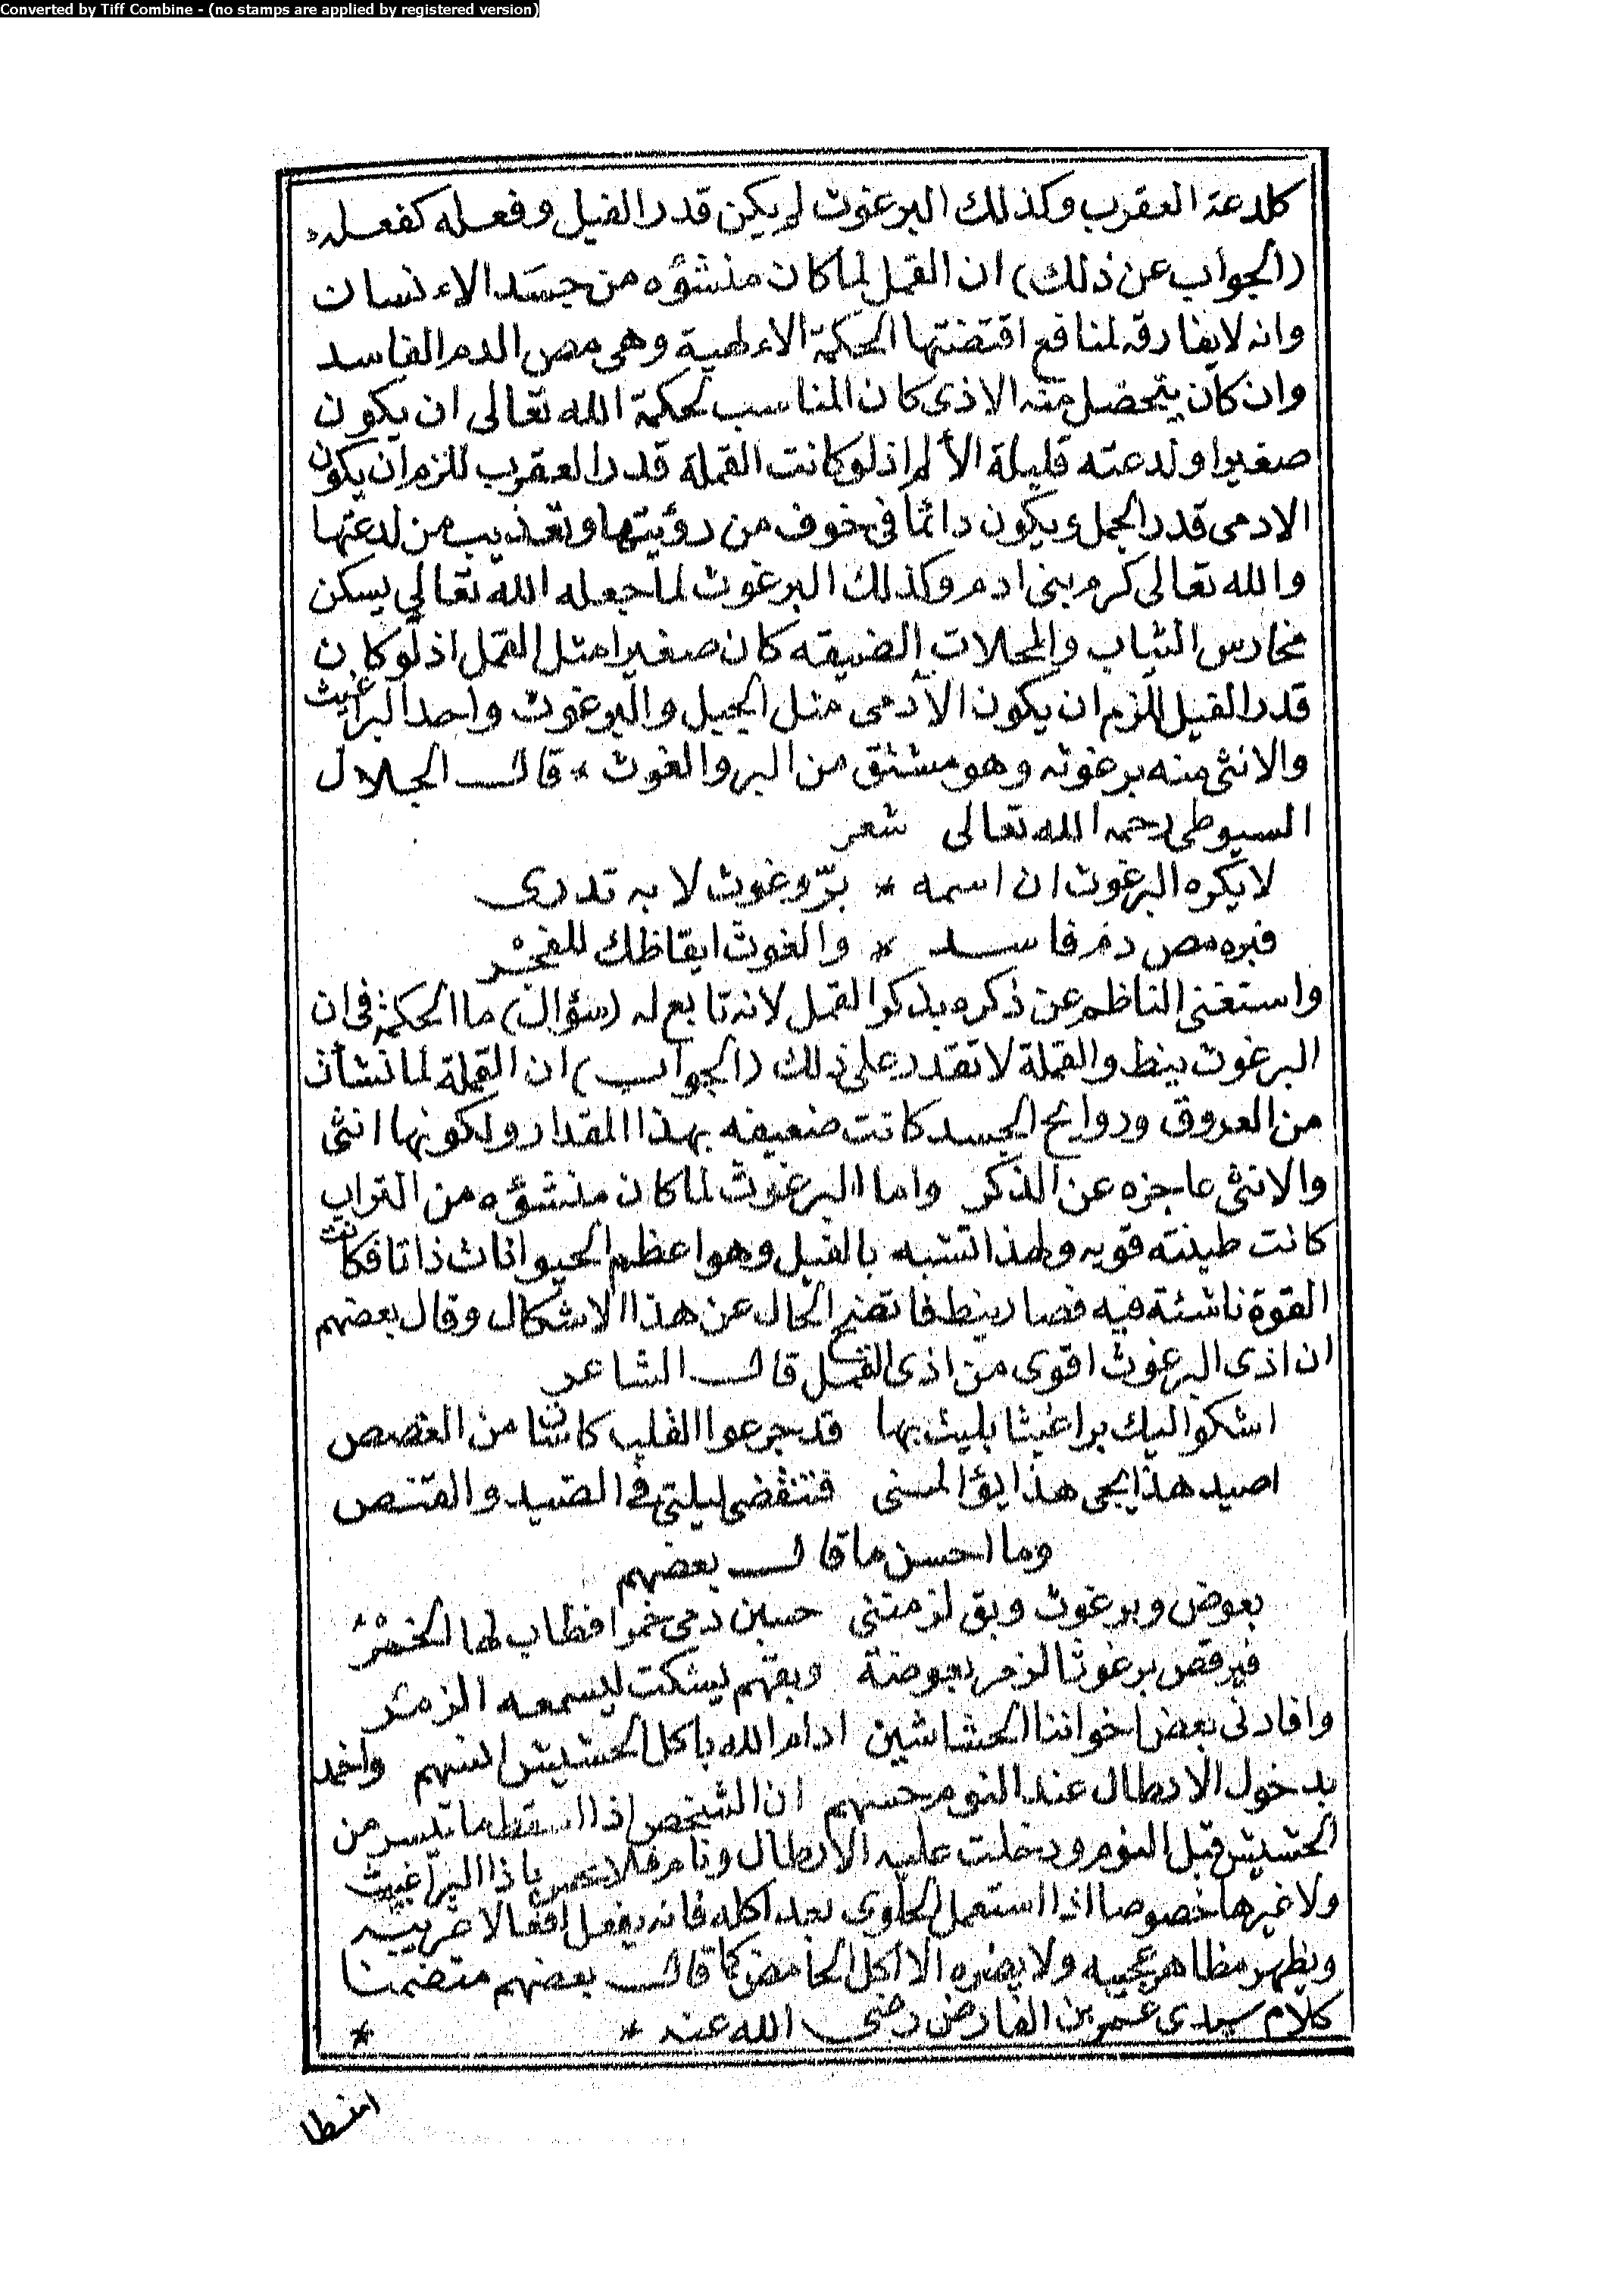 Converted by Tiff Combine - (no stamps are applied by registered version)
كلدعة العقرب وكذلك البرغوث لم يكن قدر الفيل وفعله كفعله
(الجواب عن ذلك) ان القمل لما كان منشؤه من جسد الاءنسان
وانه لا يفارقه لمنافع اقتضتها الحكمة الاءلهية وهى مص الدم الفاسد
وان كان يتحصل منه الاذى كان المناسب لحكمة الله تعالى ان يكون
صغيرا ولدعته قليلة الألم اذ لو كانت القملة قدر العقرب للزم ان يكون
الادمى قدر الجمل ويكون دائما فى خوف من رؤيتها وتعذيب من لدعتها
والله تعالى كرم بنى ادم وكذلك البرغوث لما جعله الله تعالى يسكن
مخارس الثياب والمحلات الضيقه كان صغيرا مثل القمل اذ لو كان
قدر الفيل للزم ان يكون الآدمى مثل الجبل والبرغوث واحد البراغيث
والانثى منه برغوثه وهو مشتق من البر والغوث * قال الجلال
السيوطى رحمه الله تعالى شعر
لا يكره البرغوث ان اسمه * برّ وغوث لا به تدرى
فبره مص دم فاسد * والغوث ايقاظك للفجر
واستغنى الناظم عن ذكره بذكر القمل لانه تابع له (سؤال) ما الحكمة فى ان
البرغوث ينط والقملة لا تقدر على ذلك (الجواب) ان القملة لما نشأت
من العروق وروايح الجسد كانت ضعيفه بهذا المقدار ولكونها انثى
والانثى عاجزه عن الذكر واما البرغوث لما كان منشؤه من التراب
كانت طينته قويه ولهذا تشبه بالفيل وهو اعظم الحيوانات ذاتا فكانت
القوة ناشئة فيه فصار ينط فاتضح الحال عن هذا الاشكال وقال بعضهم
ان اذى البرغوث اقوى من اذى القمل قال الشاعر
اشكوا اليك براغيثا بليت بها قد جرعوا القلب كاسا من الغصص
اصيد هذا يجى هذا يؤالمنى فتنقضى ليلتى فى الصيد والقنص
وما احسن ما قال بعضهم
بعوض وبرغوث وبق لزمتنى حسبن دمى خمرا فطاب لها الخمر
فيرقص برغوثا لزمر بعوضة وبقهم ليسكت ليسمعه الزمر
وافادنى بعض اخواننا الحشاشين ادام الله باكل الحشيش انسهم واخمد
بدخول الارطال عند النوم حسهم ان الشخص اذا اسقط ما تيسر من
الحشيش قبل النوم ودخلت عليه الارطال ونام فلا يحس باذا البراغيث
ولا غيرها خصوصا اذا استعمل الحلوى بعد اكله فانه يفعل افعالا غريبه
ويظهر مظاهر عجيبه ولا يضره الا اكل الحامض كما قال بعضهم متضمنا
كلام سيدى عمر بن الفارض رضى الله عنه * *